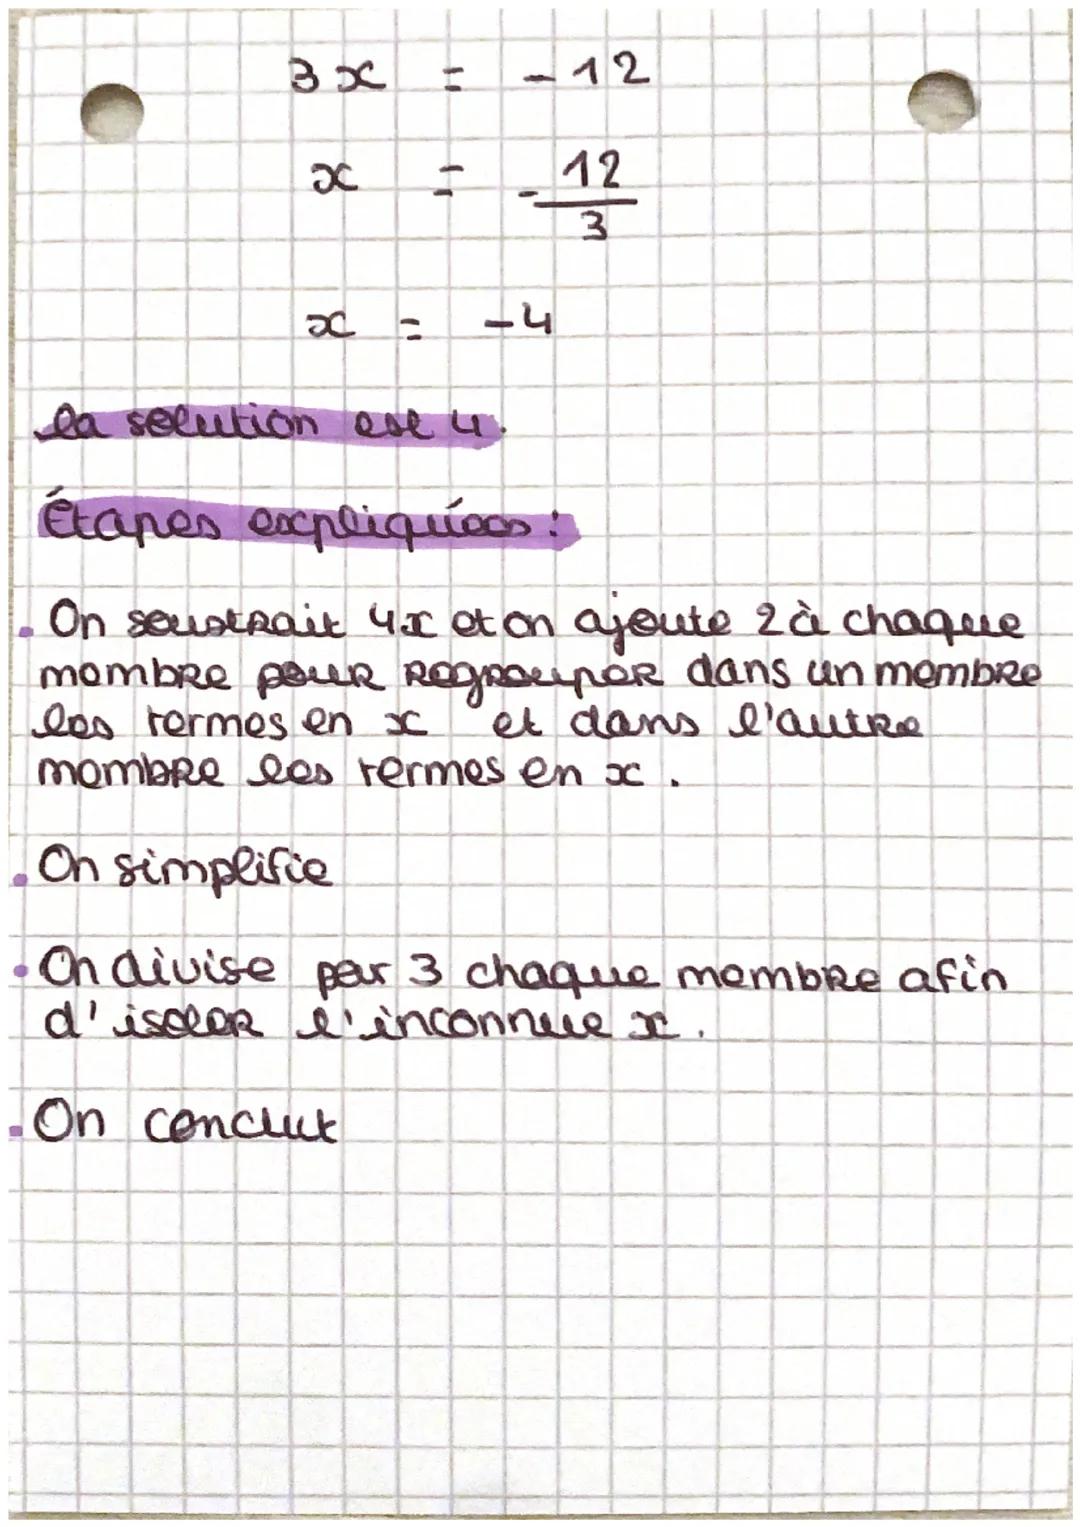 3x = -12
x = -12/3
x = -4
la solution est 4.
Étapes expliquées :
. On soustrait 4x et on ajoute 2 à chaque
membre pour regrouper dans un membre
les termes en x et dans l'autre
membre les termes en x.
. On simplifie
. On divise par 3 chaque membre afin
d'isoler l'inconnue x.
. On conclut